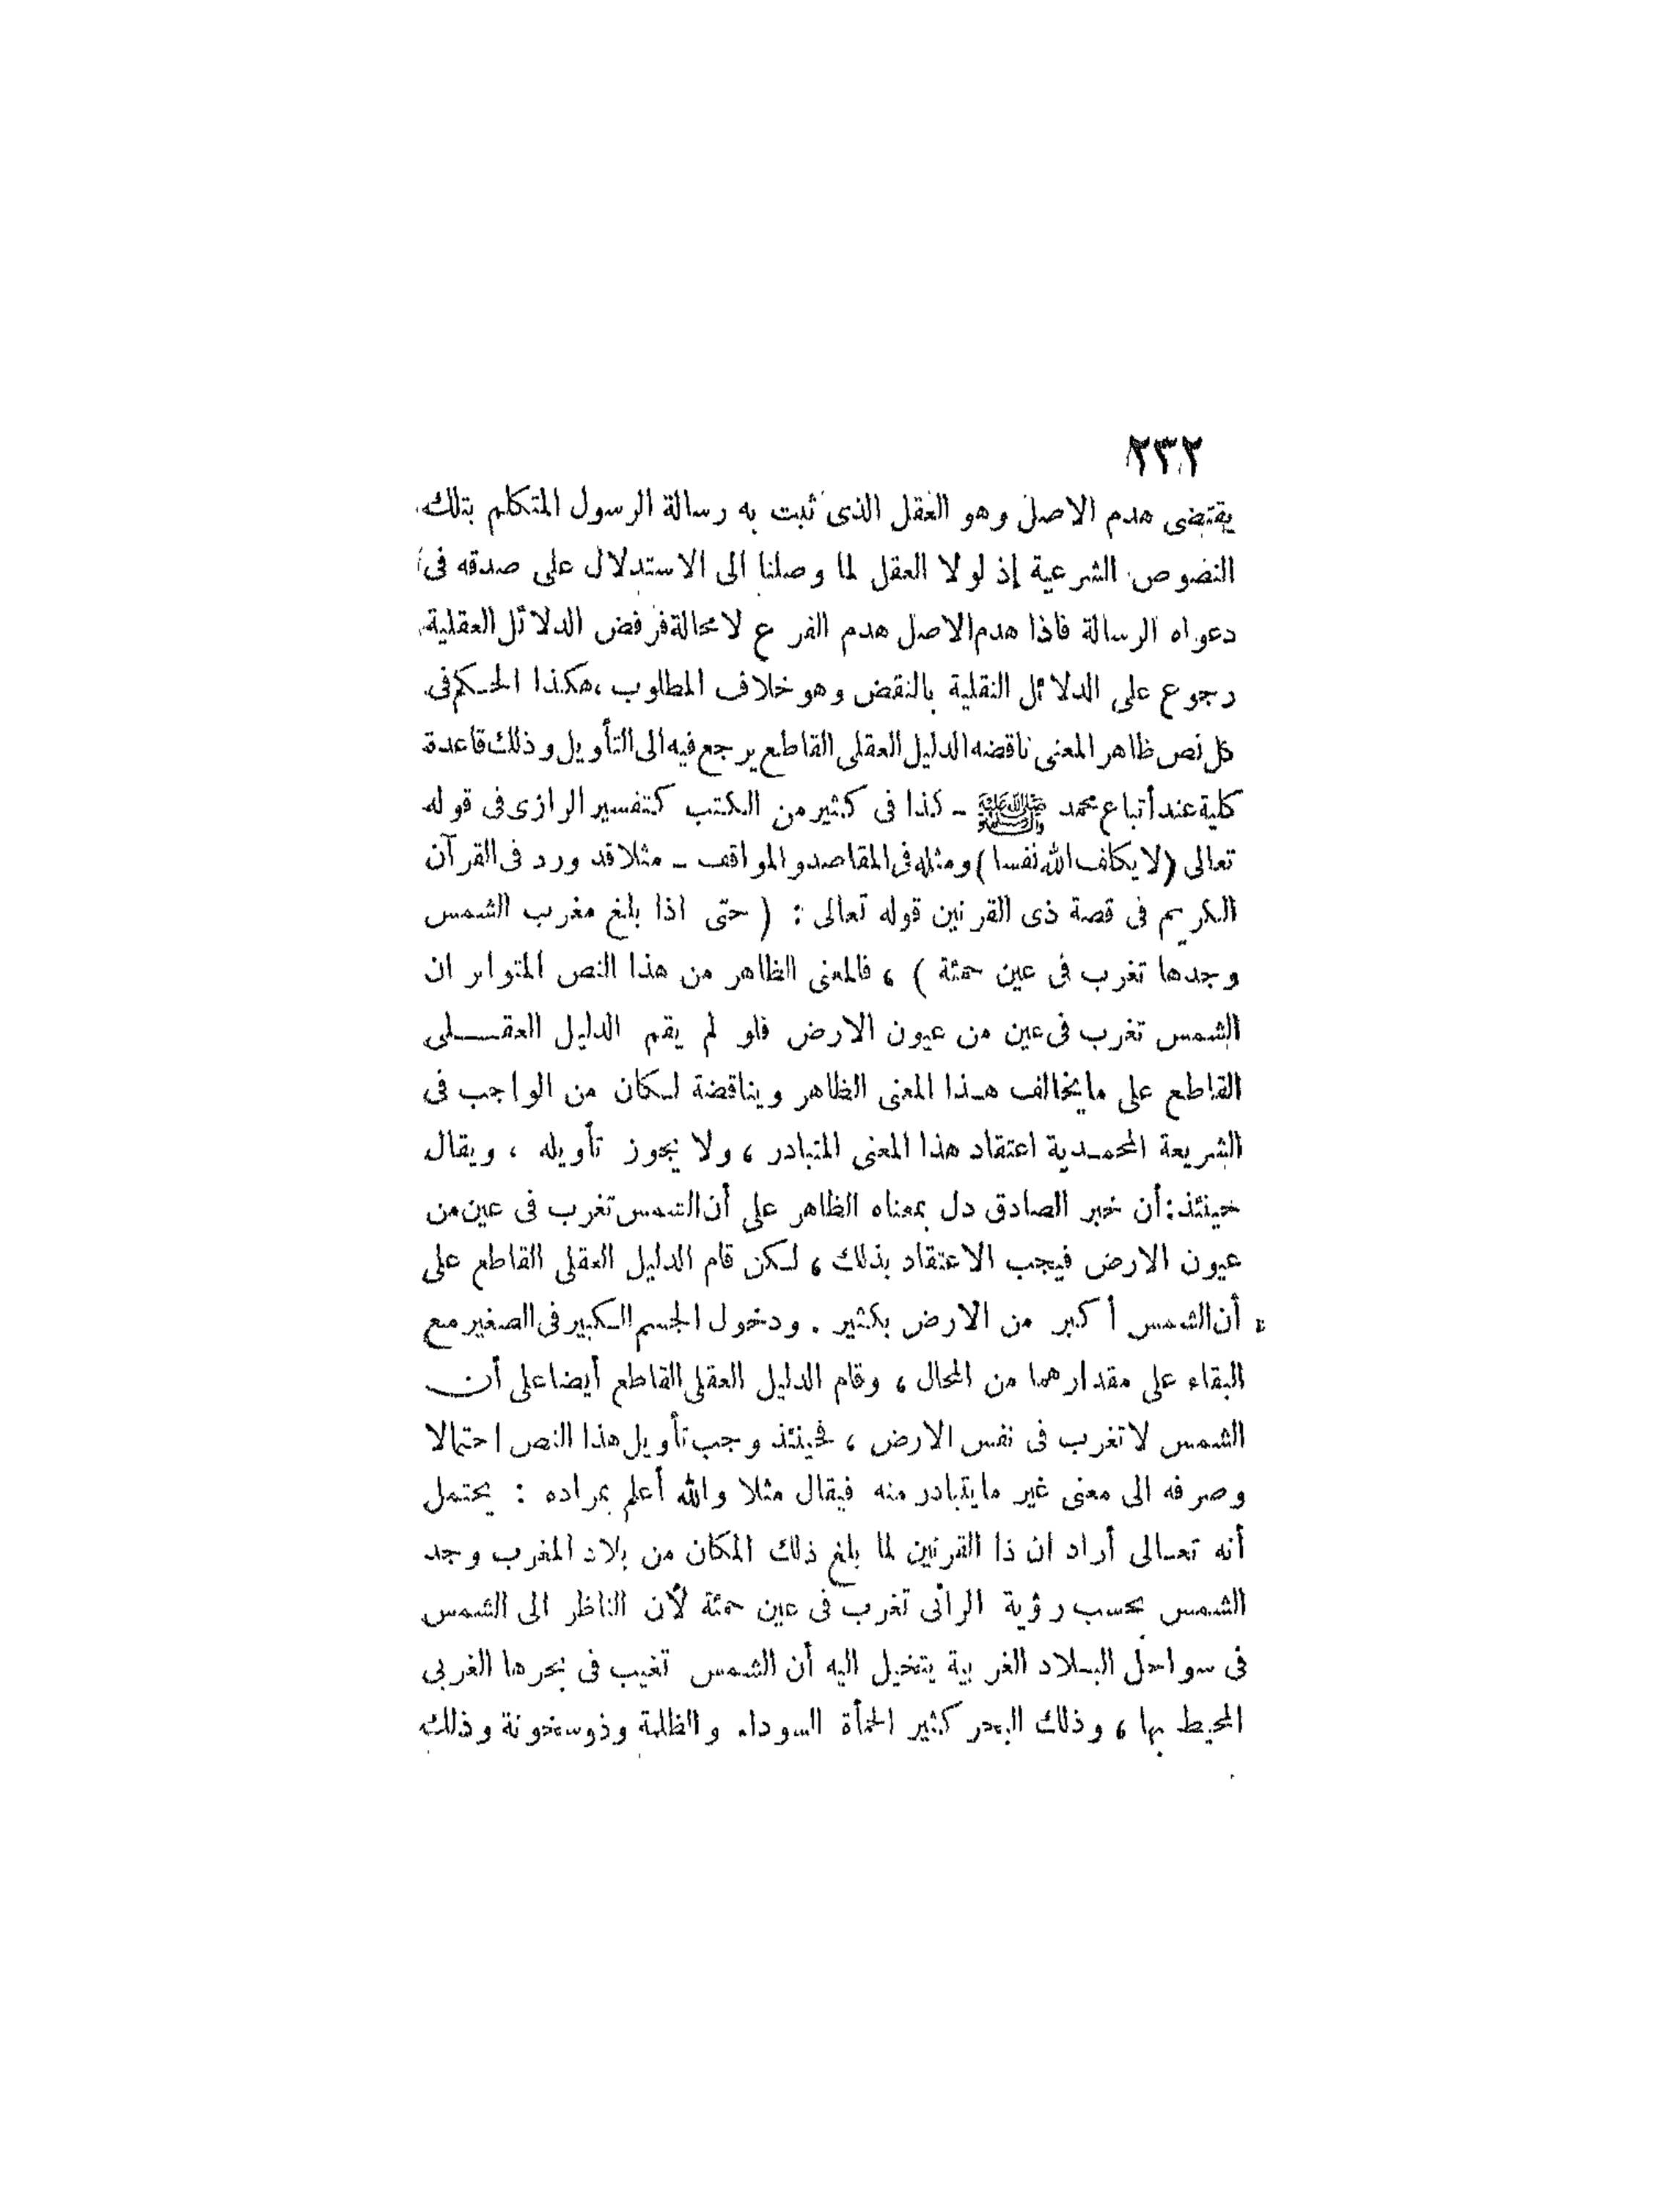 ٢٣٢
يقتضى هدم الاصل وهو العقل الذى ثبت به رسالة الرسول المتكلم بتلك
النصوص الشرعية إذ لولا العقل لما وصلنا الى الاستدلال على صدقه فى
دعواه الرسالة فاذا هدم الاصل هدم الفرع لا محالة فرفض الدلائل العقلية
رجوع على الدلائل النقلية بالنقض وهو خلاف المطلوب ، هكذا الحكم فى
كل نص ظاهر المعنى ناقضه الدليل العقلى القاطع يرجع فيه الى التأويل وذلك قاعدة
كلية عند أتباع محمد ﷺ - كذا فى كثير من الكتب كتفسير الرازى فى قوله
تعالى (لا يكلف الله نفسا) ومثله فى المقاصد والمواقف - مثلا قد ورد فى القرآن
الكريم فى قصة ذى القرنين قوله تعالى : ( حتى اذا بلغ مغرب الشمس
وجدها تغرب فى عين حمئة ) ، فالمعنى الظاهر من هذا النص المتواتر ان
الشمس تغرب فى عين من عيون الارض فلو لم يقم الدليل العقـــلى
القاطع على ما يخالف هذا المعنى الظاهر ويناقضة لكان من الواجب فى
الشريعة المحمدية اعتقاد هذا المعنى المتبادر ، ولا يجوز تأويله ، ويقال
حينئذ : أن خبر الصادق دل بمعناه الظاهر على أن الشمس تغرب فى عين من
عيون الارض فيجب الاعتقاد بذلك ، لكن قام الدليل العقلى القاطع على
أن الشمس أكبر من الارض بكثير . ودخول الجسم الكبير فى الصغير مع
البقاء على مقدارهما من المحال ، وقام الدليل العقلى القاطع أيضا على أن
الشمس لا تغرب فى نفس الارض ، فحينئذ وجب تأويل هذا النص احتمالا
وصرفه الى معنى غير ما يتبادر منه فيقال مثلا والله أعلم بمراده : يحتمل
أنه تعالى أراد ان ذا القرنين لما بلغ ذلك المكان من بلاد المغرب وجد
الشمس بحسب رؤية الرائى تغرب فى عين حمئة لأن الناظر الى الشمس
فى سواحل البلاد الغربية يتخيل اليه أن الشمس تغيب فى بحرها الغربى
المحيط بها ، وذلك البحر كثير الحمأة السوداء والظلمة وذو سخونة وذلك